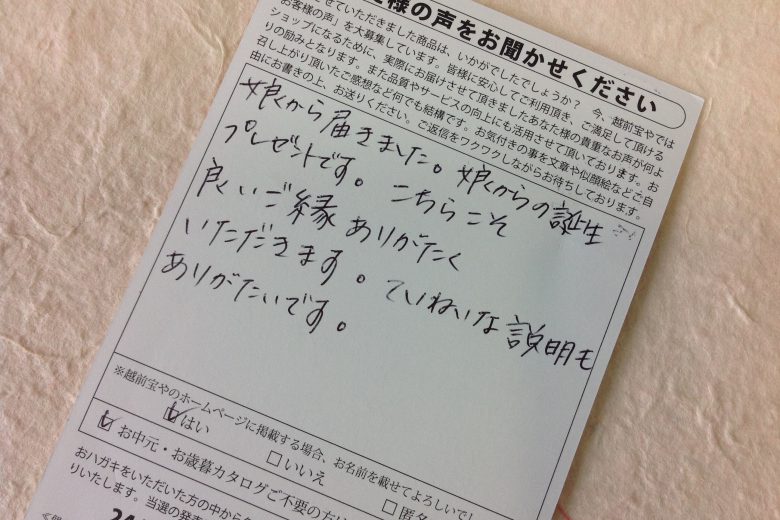 様の声をお聞かせください
せていただきました商品は、いかがでしたでしょうか？ 今、越前宝やでは
お客様の声」を大募集しています。皆様に安心してご利用頂き、ご満足して頂ける
ショップになるために、実際にお届けさせて頂きましたあなた様の貴重なお声が何よ
りの励みとなります。また品質やサービスの向上にも活用させて頂いております。お
召し上がり頂いたご感想など何でも結構です。お気付きの事を文章や似顔絵などご自
由にお書きの上、お送りください。ご返信をワクワクしながらお待ちしております。
娘から届きました。娘からの誕生
プレゼントです。こちらこそ
良いご縁ありがたく
いただきます。ていねいな説明も
ありがたいです。
※越前宝やのホームページに掲載する場合、お名前を載せてよろしいでし
はい □いいえ □匿名
お中元・お歳暮カタログご不要の方は
おハガキをいただいた方の中から
りいたします。当選の発表